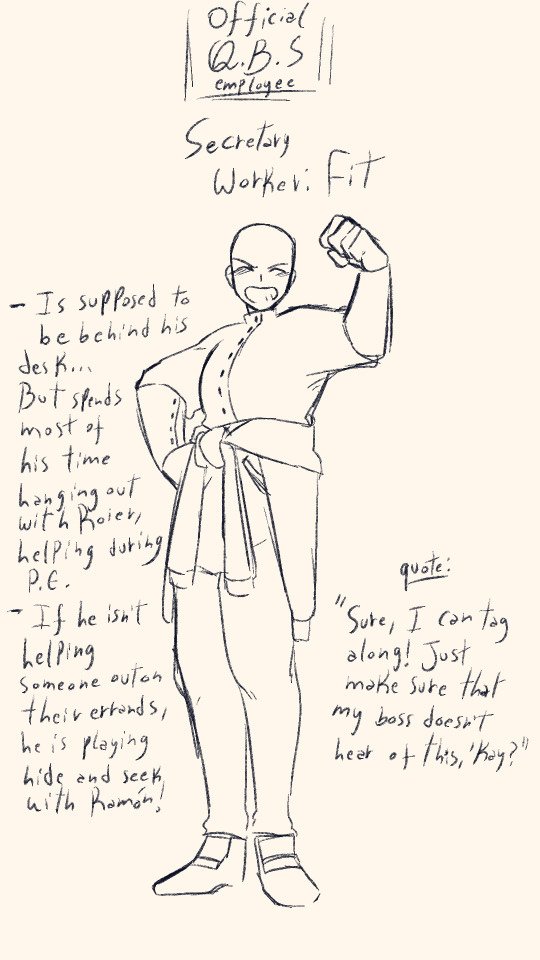 Official
Q.B.S
employee
Secretary
Worker: Fit
- Is supposed to
be behind his
desk...
But spends
most of
his time
hanging out
with Roier,
helping during
P.E.
- If he isn't
helping
someone out on
their errands,
he is playing
hide and seek
with Ramón!
quote:
"Sure, I can tag
along! Just
make sure that
my boss doesn't
hear of this, 'Kay?"